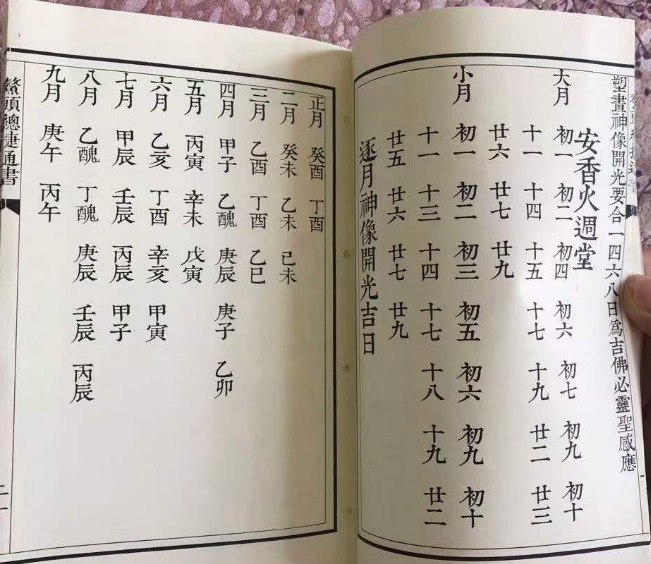 塑畫神像開光要合一四六八日為吉佛必靈聖感應
安香火週堂
大月 初一 初二 初四 初六 初七 初九 初十
十一 十四 十五 十七 十九 廿二 廿三
廿六 廿七 廿九
小月 初一 初二 初三 初五 初六 初九 初十
十一 十三 十四 十七 十八 十九 廿二
廿五 廿六 廿七 廿九
逐月神像開光吉日
正月 癸酉 丁酉
二月 癸未 乙未 己未
三月 乙酉 丁酉 乙巳
四月 甲子 乙醜 庚辰 庚子 乙卯
五月 丙寅 辛未 戊寅
六月 乙亥 丁酉 辛亥 甲寅
七月 甲辰 壬辰 丙辰 甲子
八月 乙醜 丁醜 庚辰 壬辰 丙辰
九月 庚午 丙午
鰲頭總捷通書